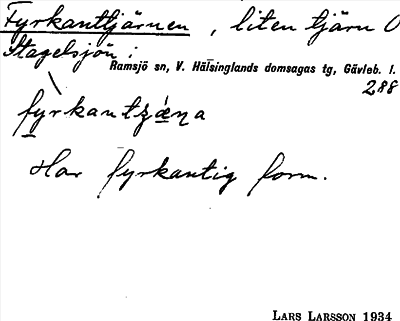 Fyrkanttjärnen, liten tjärn O
Stagelsjön;
Ramsjö sn, V. Hälsinglands domsagas tg, Gävleb. l.
288
Har fyrkantig form.
LARS LARSSON 1934